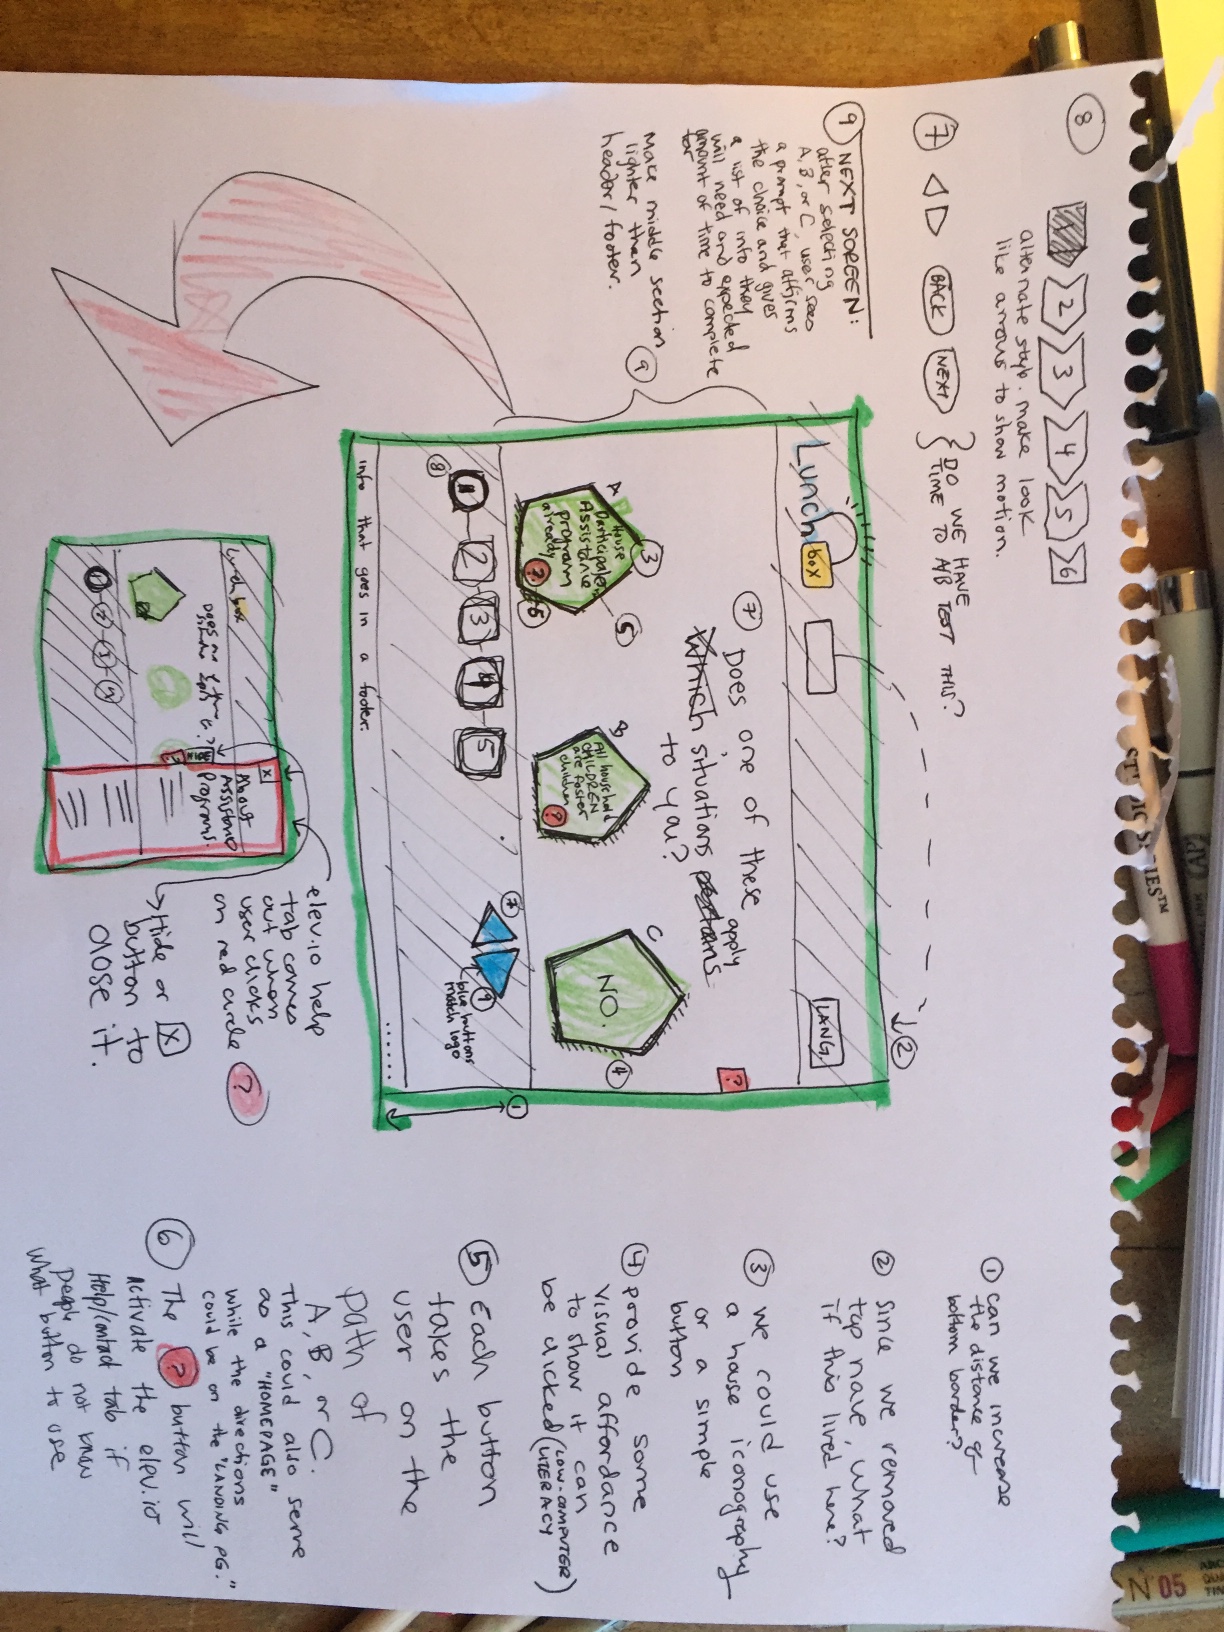 8
2
3
4
5
6
alternate style. make look
like arrows to show motion.
7
BACK
NEXT
DO WE HAVE
TIME TO A/B TEST THIS?
9 NEXT SCREEN:
after selecting
A, B, or C, user sees
a prompt that affirms
the choice and gives
a list of info they
will need and expected
amount of time to complete
for
Make middle section
lighter than
header/footer.
9
Lunch box
LANG
2
7 Does one of these
Which situations apply
to you?
?
A
3
House
Participates
Assistance
program
already
?
6
5
B
All household
CHILDREN
are foster
children
?
C
NO.
4
8
1
2
3
4
5
7
9
blue buttons
match logo
1
info that goes in a footer.
Lunch box
Does one of these
1
2
3
4
X
About
Assistance
Programs.
elev.io help
tab comes
out when
user clicks
on red circle ?
Hide or X
button to
close it.
1 can we increase
the distance of
bottom border?
2 since we removed
top nave, what
if this lived here?
3 we could use
a house iconography
or a simple
button
4 provide some
visual affordance
to show it can
be clicked (LOW-COMPUTER
LITERACY)
5 Each button
takes the
user on the
path of
A, B, or C.
This could also serve
as a "HOMEPAGE"
while the directions
could be on the "LANDING PG."
6 The ? button will
activate the elev.io
Help/contact tab if
people do not know
what button to use
STUDIO SERIES™
N°05